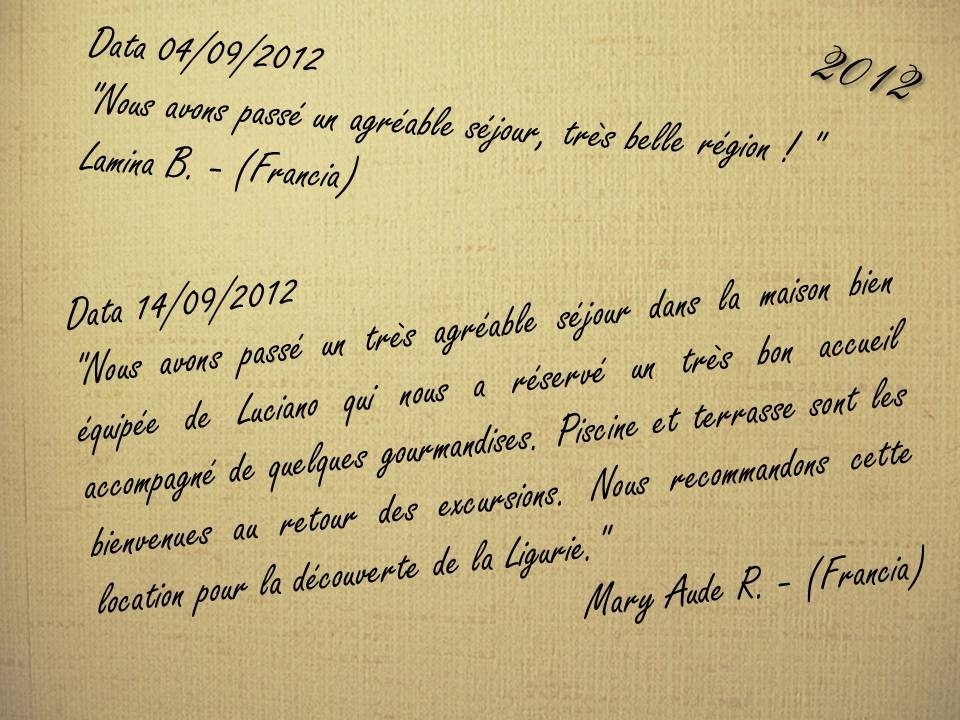 Data 04/09/2012
2012
"Nous avons passé un agréable séjour, très belle région ! "
Lamina B. - (Francia)
Data 14/09/2012
"Nous avons passé un très agréable séjour dans la maison bien
équipée de Luciano qui nous a réservé un très bon accueil
accompagné de quelques gourmandises. Piscine et terrasse sont les
bienvenues au retour des excursions. Nous recommandons cette
location pour la découverte de la Ligurie."
Mary Aude R. - (Francia)